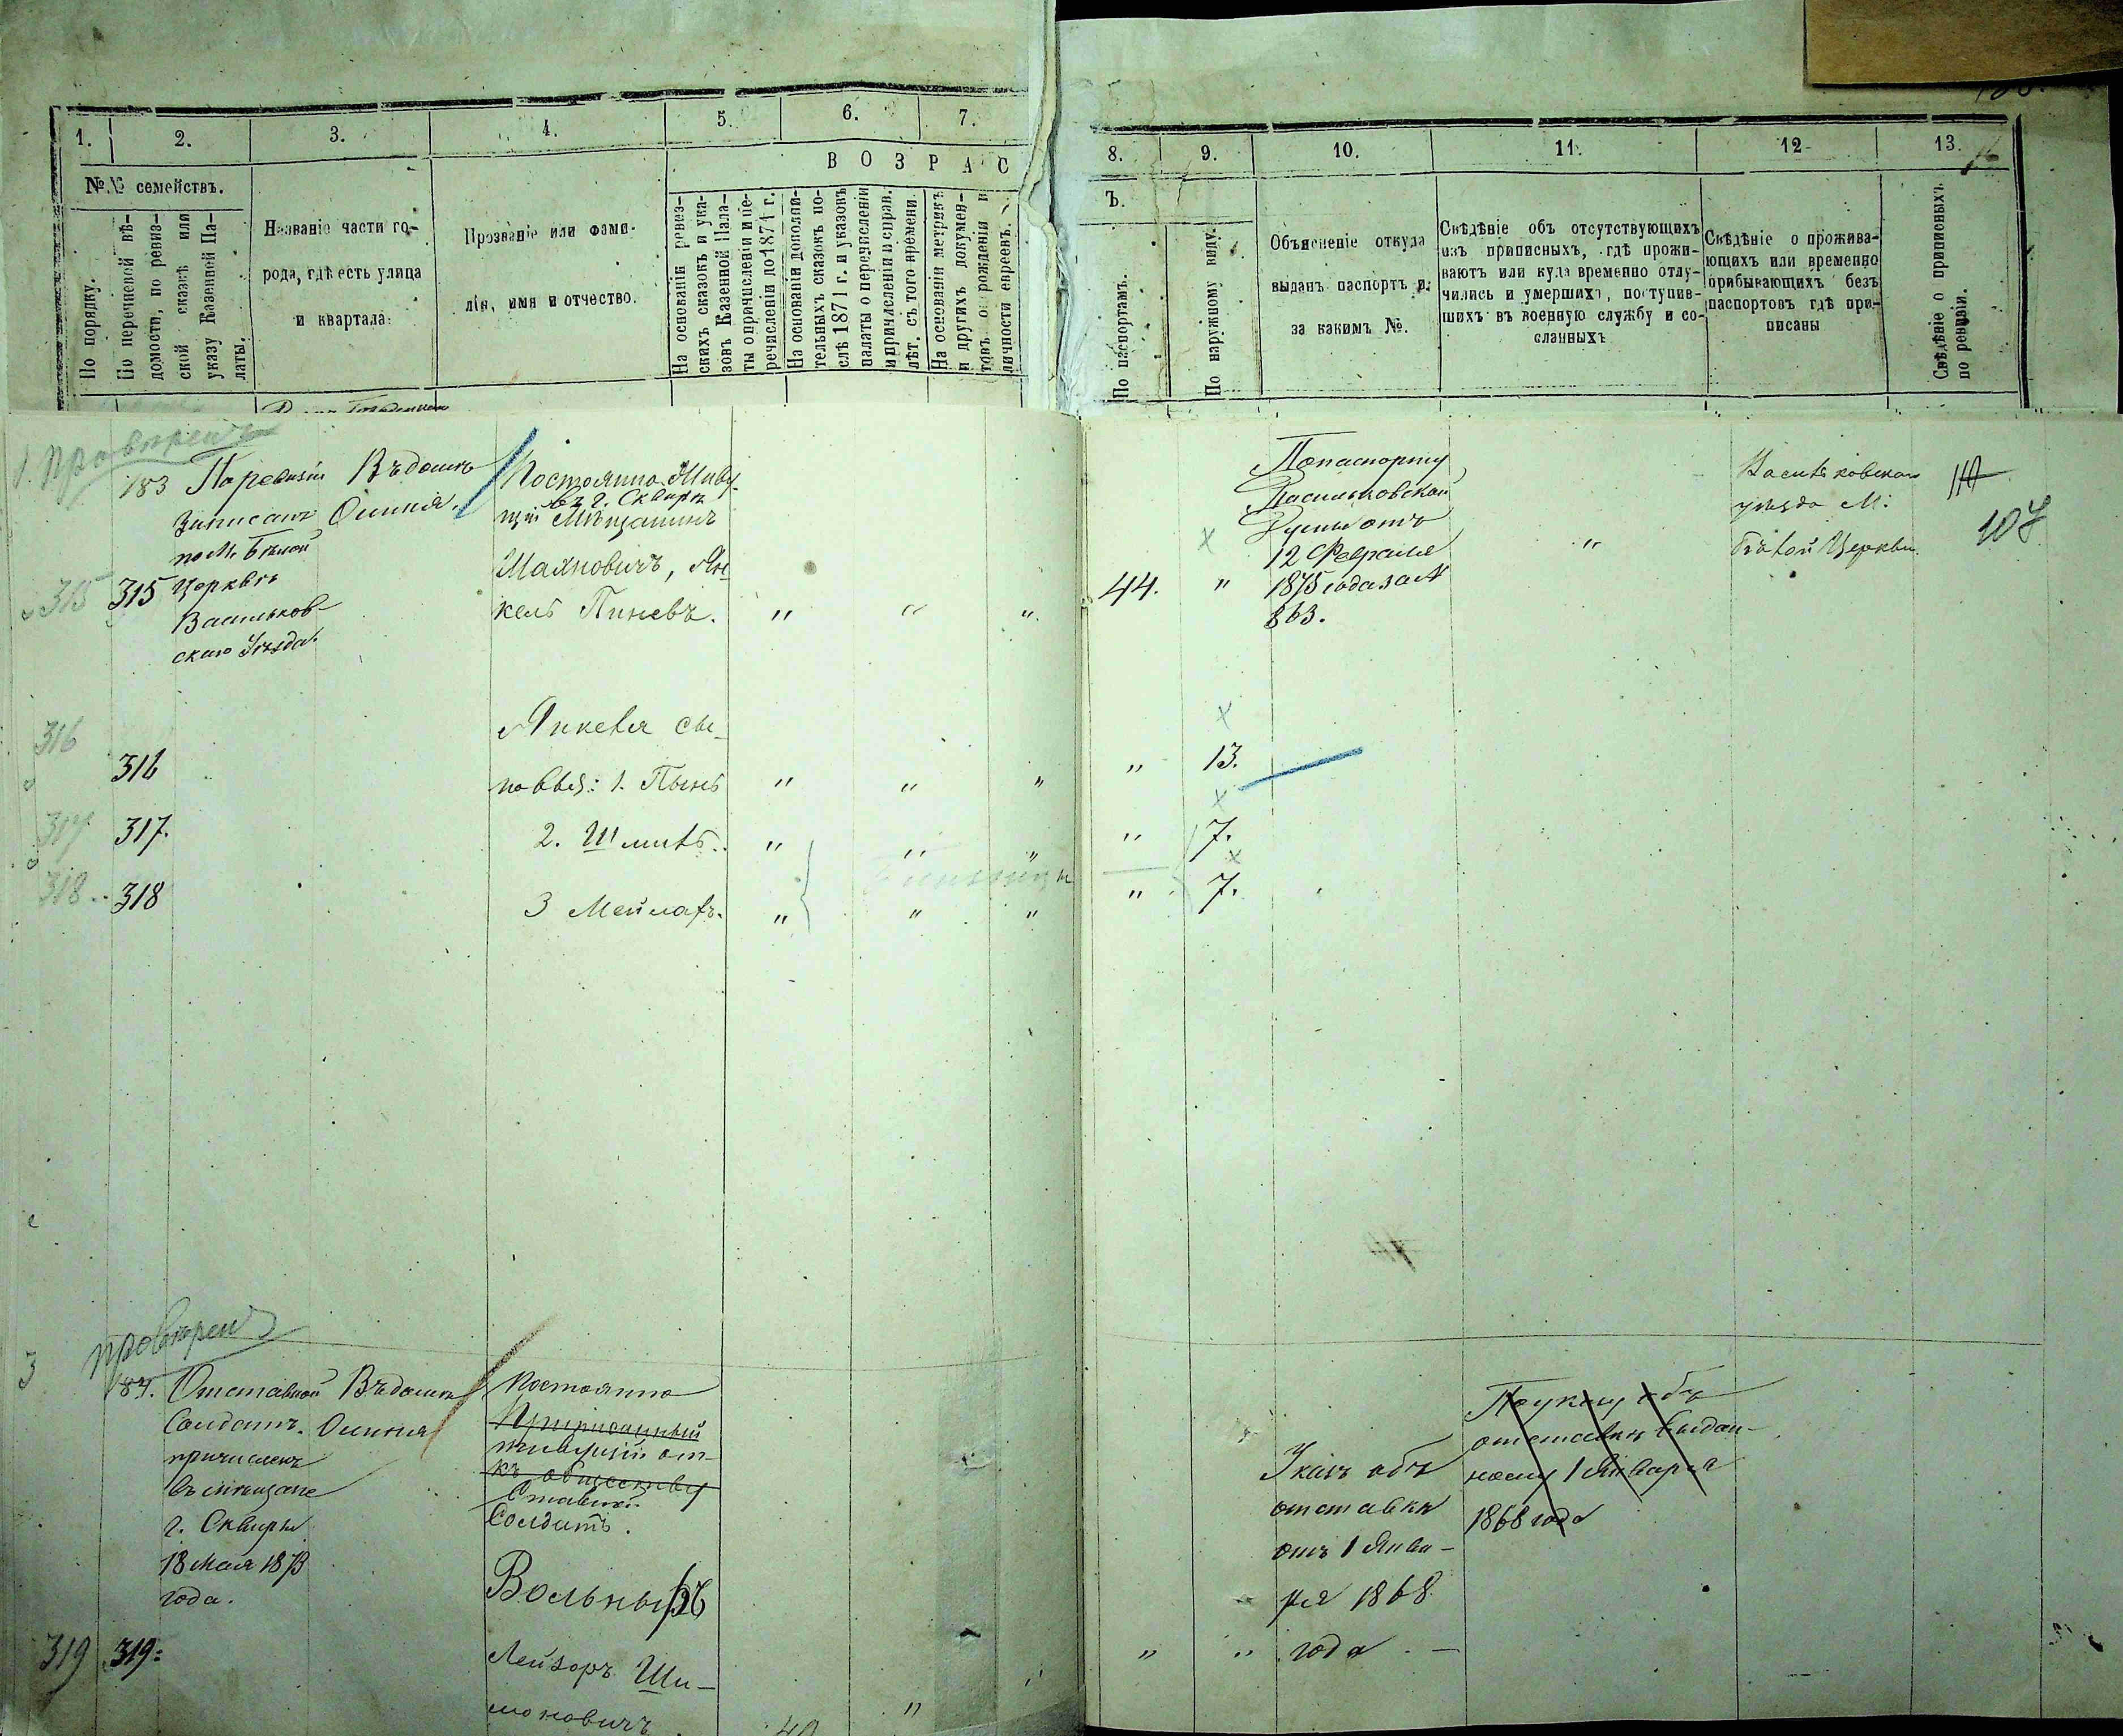 1. 2. 3. 4. 5. 6. 7.
ВОЗРАС
№№ семействъ.
По порядку.
По перечневой вѣ-
домости, по ревиз-
ской сказкѣ или
указу Казенной Па-
латы.
Названіе части го-
рода, гдѣ есть улица
и кварталъ.
Прозваніе или фами-
лія, имя и отчество.
На основаніи ревиз-
скихъ сказокъ и ука-
зовъ Казенной Пала-
ты о причисленіи и пе-
речисленіи до 1871 г.
На основаніи дополни-
тельныхъ сказокъ по-
слѣ 1871 г. и указовъ
палаты о перечисленіи
и причисленіи и справ.
лѣт. съ того времени.
На основаніи метрикъ
и другихъ докумен-
товъ о рожденіи и
личности евреевъ.
8. 9. 10. 11. 12 13.
Ъ.
По паспортамъ.
По наружному виду.
Объясненіе откуда
выданъ паспортъ и
за какимъ №.
Свѣдѣніе объ отсутствующихъ
изъ приписныхъ, гдѣ прожи-
ваютъ или куда временно отлу-
чились и умершихъ, поступив-
шихъ въ военную службу и со-
сланныхъ
Свѣдѣніе о прожива-
ющихъ или временно
прибывающихъ безъ
паспортовъ гдѣ при-
писаны
Свѣдѣніе о приписныхъ
по ревизіи.
провѣренъ
183 По ревизіи Вѣдомъ
записанъ Олшкія.
по М. Бѣлой
315 315 Церкви
Васильков-
скаго Уѣзда.
Постоянно Живу-
въ г. Сквирѣ
щій Мѣщанинъ
Шаяновичъ, Ян-
кель Пиневъ. " " "
44. "
По паспорту
Васильковской
Думы отъ
12 Февраля
1875 года за №
863.
"
Васильковскаго
уѣзда М:
Бѣлой Церкви
107
316 316
Янкеля сы-
новья: 1. Пынь " " "
" 13.
317 317. 2. Шмиль. " " "
" 7.
318 318 3 Мейлахъ. " " "
" 7.
провѣренъ
184. Отставной Вѣдомъ
Солдатъ. Олшкія
причисленъ
въ мѣщане
г. Сквиры
18 Мая 1873
года.
Постоянно
живущій от-
къ обществу
ставной
Солдатъ.
Вольный
319 319. Лейзоръ Ши-
моновичъ
" "
Указъ объ
отставкѣ
отъ 1 Янва-
ря 1868
года. —
По указу объ
отставкѣ выдан-
ному 1 Января
1868 года